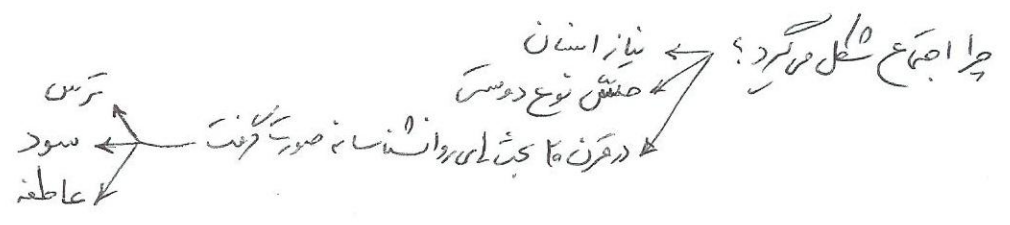 چرا اجتماع شکل می‌گیرد؟
نیاز انسان
حسّ نوع دوستی
در قرن ۲۰ بحث‌های روانشناسانه صورت گرفت
ترس
سود
عاطفه